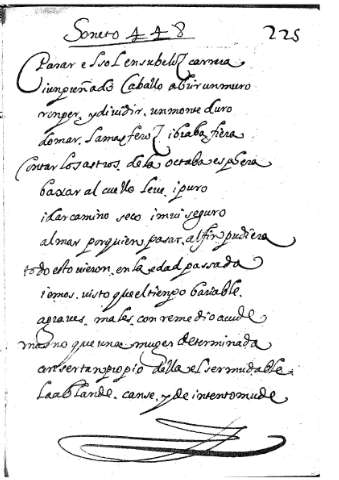 Soneto 448 225
Parar el sol en su beloz carrera
i un peñado caballo abrir un muro
ronper, y dividir. un monte duro
domar. la mas feroz ibraba fiera
Contar los astros. de la octaba esphera
baxar al cuello leve. i puro
i dar camino seco imui seguro
al mar por quien pasar. al fin pudiera
todo esto vieron. en la edad passada
iemos. visto que el tienpo bariable.
agraves. males. con remedio acude
mas no que una muger determinada
con ser tan propio della el ser mudable.
la ablande. canse, y de intento mude